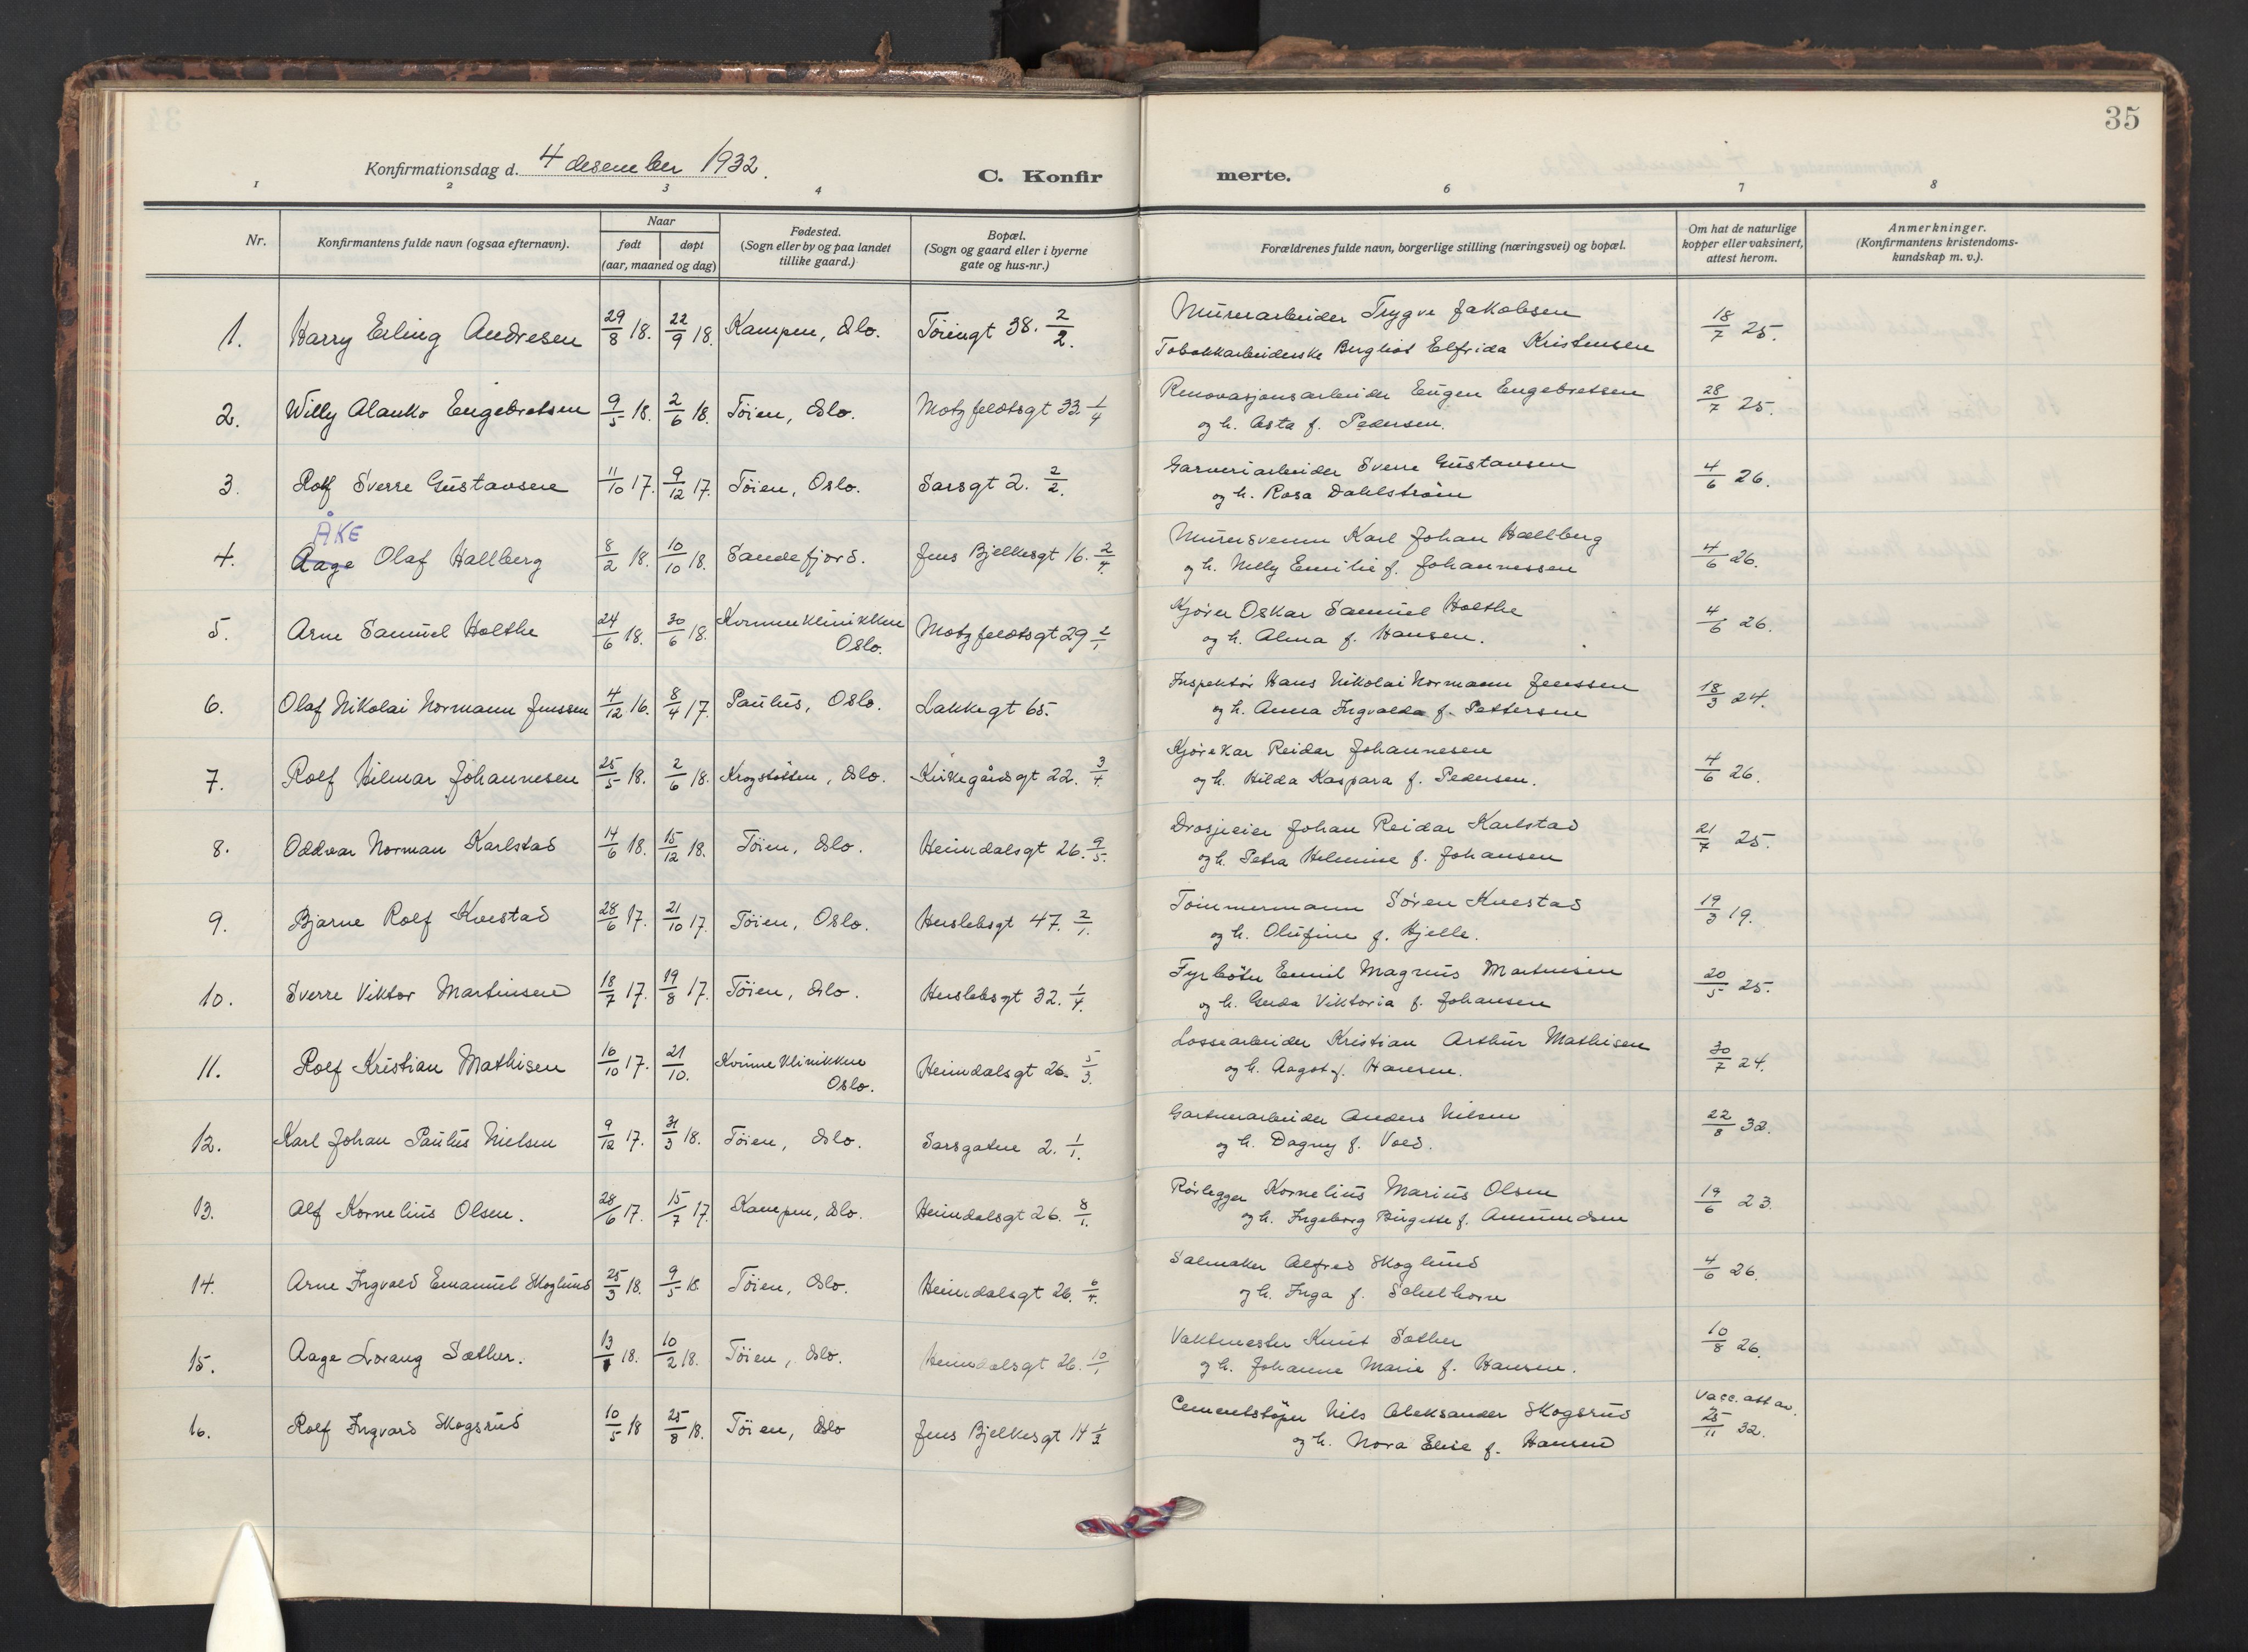 35
Konfirmationsdag d. 4 desember 1932.
C. Konfirmerte.
1 2 3 4 6 7 8
Nr.
Konfirmantens fulde navn (ogsaa efternavn).
Naar
født døpt
(aar, maaned og dag)
Fødested.
(Sogn eller by og paa landet
tillike gaard.)
Bopæl.
(Sogn og gaard eller i byerne
gate og hus-nr.)
Forældrenes fulde navn, borgerlige stilling (næringsvei) og bopæl.
Om hat de naturlige
kopper eller vaksinert,
attest herom.
Anmerkninger.
(Konfirmantens kristendoms-
kundskap m. v.).
1. Harry Erling Andresen 29/8 18. 22/9 18. Kampen, Oslo. Töiengt 38. 2/2. Murerarbeider Trygve Jakobsen 18/7 25.
Tobakkarbeiderske Bergliot Elfrida Kristensen
2. Willy Alanko Engebretsen 9/5 18. 2/6 18. Töien, Oslo. Motzfeldtsgt 33 1/4 Renovasjonsarbeider Eugen Engebretsen 28/7 25.
og h. Asta f. Pedersen.
3. Rolf Sverre Gustavsen 11/10 17. 9/12 17. Töien, Oslo. Sarsgt 2. 2/2. Garveriarbeider Sverre Gustavsen 4/6 26.
og h. Rosa Dahlström
ÅKE
4. Aage Olaf Hallberg 8/2 18. 10/10 18. Sandefjord. Jens Bjelkesgt 16. 2/4. Murersvenn Karl Johan Hallberg 4/6 26.
og h. Nelly Emilie f. Johannessen
5. Arne Samuel Holthe 24/6 18. 30/6 18. Kvinneklinikken Motzfeldtsgt 29 2/1 Kjörer Oskar Samuel Holthe 4/6 26.
Oslo. og h. Alma f. Hansen.
6. Olaf Nikolai Normann Jenssen 4/12 16. 8/4 17. Paulus, Oslo. Lakkegt 65. Inspektör Hans Nikolai Normann Jenssen 18/3 24.
og h. Anna Ingvalda f. Pettersen
7. Rolf Hilmar Johannesen 25/5 18. 2/6 18. Krogstötten, Oslo. Kirkegårdsgt 22. 3/4. Kjörekar Reidar Johannesen 4/6 26.
og h. Hilda Kaspara f. Pedersen.
8. Oddvar Norman Karlstad 14/6 18. 15/12 18. Töien, Oslo. Heimdalsgt 26. 9/5. Drosjeeier Johan Reidar Karlstad 21/7 25.
og h. Petra Helmine f. Johansen
9. Bjarne Rolf Kvestad 28/6 17. 21/10 17. Töien, Oslo. Herslebsgt 47. 2/1. Tömmermann Sören Kvestad 19/3 19.
og h. Olufine f. Hjelle.
10. Sverre Viktor Martinsen 18/7 17. 19/8 17. Töien, Oslo. Herslebsgt 32. 1/4. Fyrböter Emil Magnus Martinsen 20/5 25.
og h. Gerda Viktoria f. Johansen
11. Rolf Kristian Mathisen 16/10 17. 21/10. Kvinneklinikken Heimdalsgt 26. 5/3. Lossearbeider Kristian Arthur Mathisen 30/7 24.
Oslo. og h. Aagot f. Hansen.
12. Karl Johan Paulus Nielsen 9/12 17. 31/3 18. Töien, Oslo. Sarsgaten 2. 1/1. Gartnerarbeider Anders Nilsen 22/8 32.
og h. Dagny f. Vold.
13. Alf Kornelius Olsen. 28/6 17. 15/7 17. Kampen, Oslo. Heimdalsgt 26. 8/1. Rörlegger Kornelius Marius Olsen 19/6 23.
og h. Ingeborg Birgitte f. Amundsen
14. Arne Ingvald Emanuel Skoglund 25/3 18. 9/5 18 Töien, Oslo. Heimdalsgt 26. 6/4. Salmaker Alfred Skoglund 4/6 26.
og h. Inga f. Schelhorn
15. Aage Lorang Sæther. 13/1 18. 10/2 18. Töien, Oslo. Heimdalsgt 26. 10/1 Vaktmester Knut Sæther 10/8 26.
og h. Johanne Marie f. Hansen.
Vacc. att av.
16. Rolf Ingvard Skogsrud 10/5 18 25/8 18. Töien, Oslo Jens Bjelkesgt 14 1/2 Cementstöper Nils Aleksander Skogsrud 25/11 32.
og h. Nora Elise f. Hansen